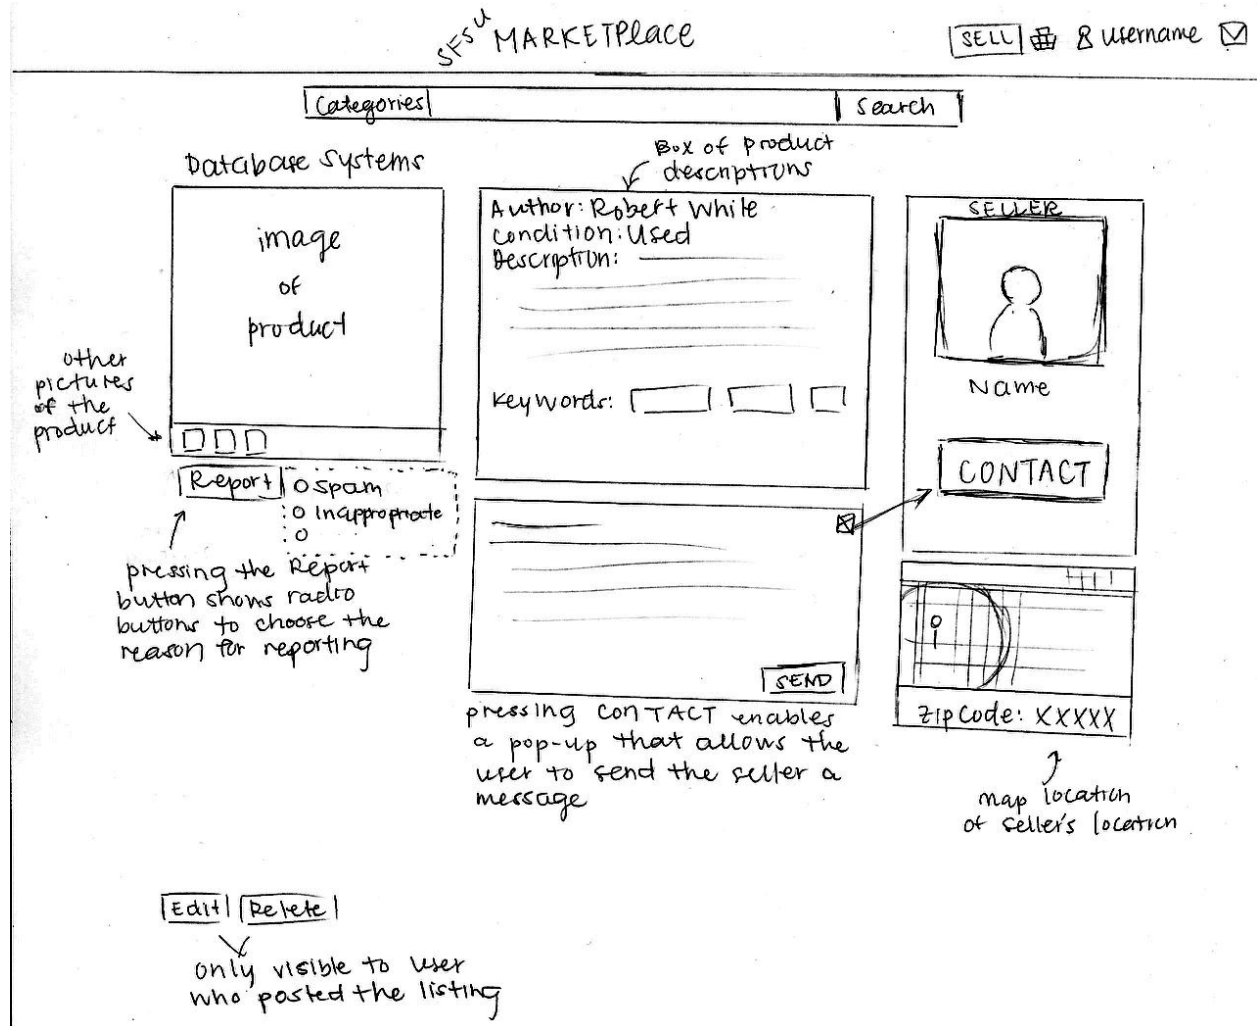 SFSU MARKETPlace
SELL
username
Categories
Search
Database Systems
image
of
product
other
pictures
of the
product
Report
Spam
Inappropriate
pressing the Report
button shows radio
buttons to choose the
reason for reporting
Box of product
descriptions
Author: Robert While
Condition: Used
Description:
Keywords:
SEND
pressing CONTACT enables
a pop-up that allows the
user to send the seller a
message
SELLER
Name
CONTACT
Zip Code: XXXXX
map location
of seller's location
Edit
Delete
only visible to user
who posted the listing